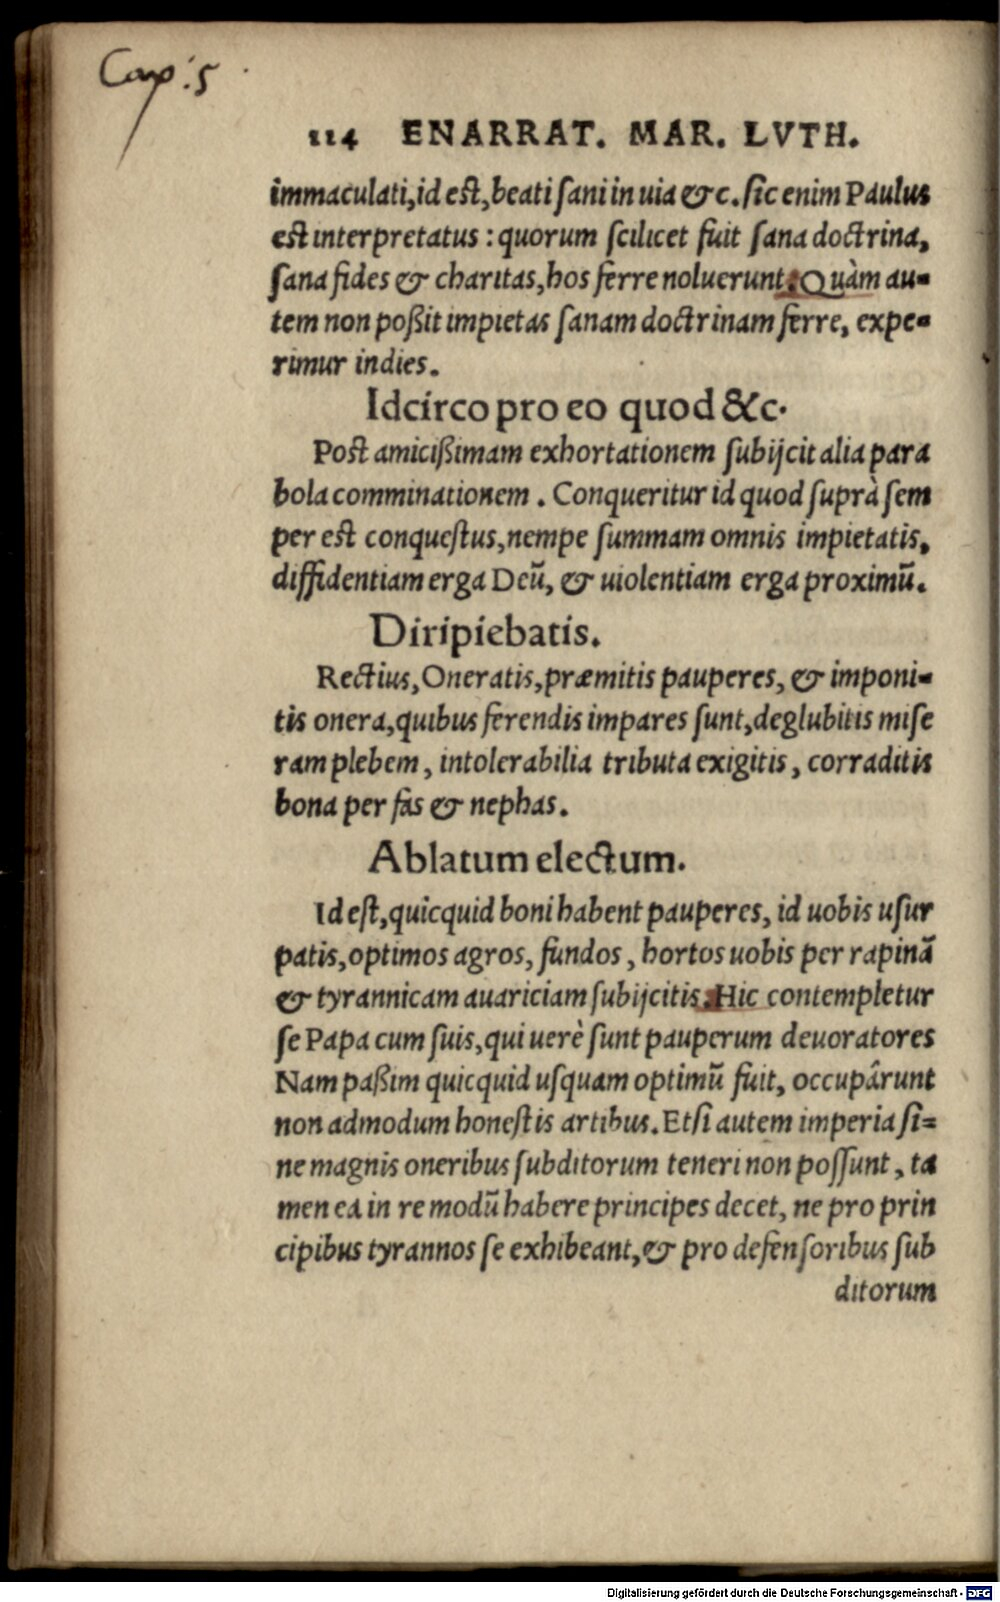 Cap: 5
114 ENARRAT. MAR. LVTH.
immaculati, id est, beati ſani in uia &c. ſic enim Paulus
est interpretatus: quorum ſcilicet fuit ſana doctrina,
ſana fides & charitas, hos ferre noluerunt. Quàm au-
tem non poßit impietas ſanam doctrinam ferre, expe-
rimur indies.
Idcirco pro eo quod &c.
Post amicißimam exhortationem ſubijcit alia para
bola comminationem. Conqueritur id quod ſuprà ſem
per est conqueſtus, nempe ſummam omnis impietatis,
diffidentiam erga Deū, & uiolentiam erga proximū.
Diripiebatis.
Rectius, Oneratis, præmitis pauperes, & imponi-
tis onera, quibus ferendis impares ſunt, deglubitis miſe
ram plebem, intolerabilia tributa exigitis, corraditis
bona per fas & nephas.
Ablatum electum.
Id eſt, quicquid boni habent pauperes, id uobis uſur
patis, optimos agros, fundos, hortos uobis per rapinā
& tyrannicam auariciam ſubijcitis. Hic contempletur
ſe Papa cum ſuis, qui uerè ſunt pauperum deuoratores
Nam paßim quicquid uſquam optimū fuit, occupârunt
non admodum honeſtis artibus. Etſi autem imperia ſi=
ne magnis oneribus ſubditorum teneri non poſſunt, ta
men ea in re modū habere principes decet, ne pro prin
cipibus tyrannos ſe exhibeant, & pro defenſoribus ſub
ditorum
Digitalisierung gefördert durch die Deutsche Forschungsgemeinschaft - DFG